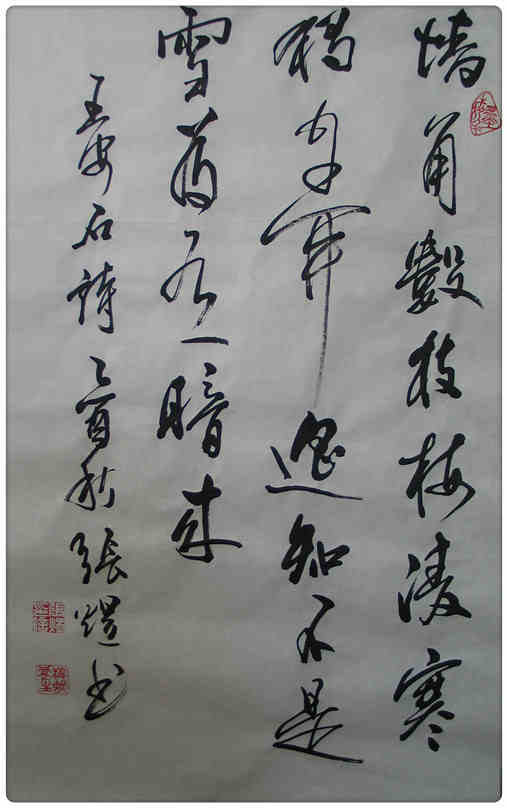 墙角數枝梅凌寒
獨自開遥知不是
雪為有暗来
王安石詩乙酉秋張书